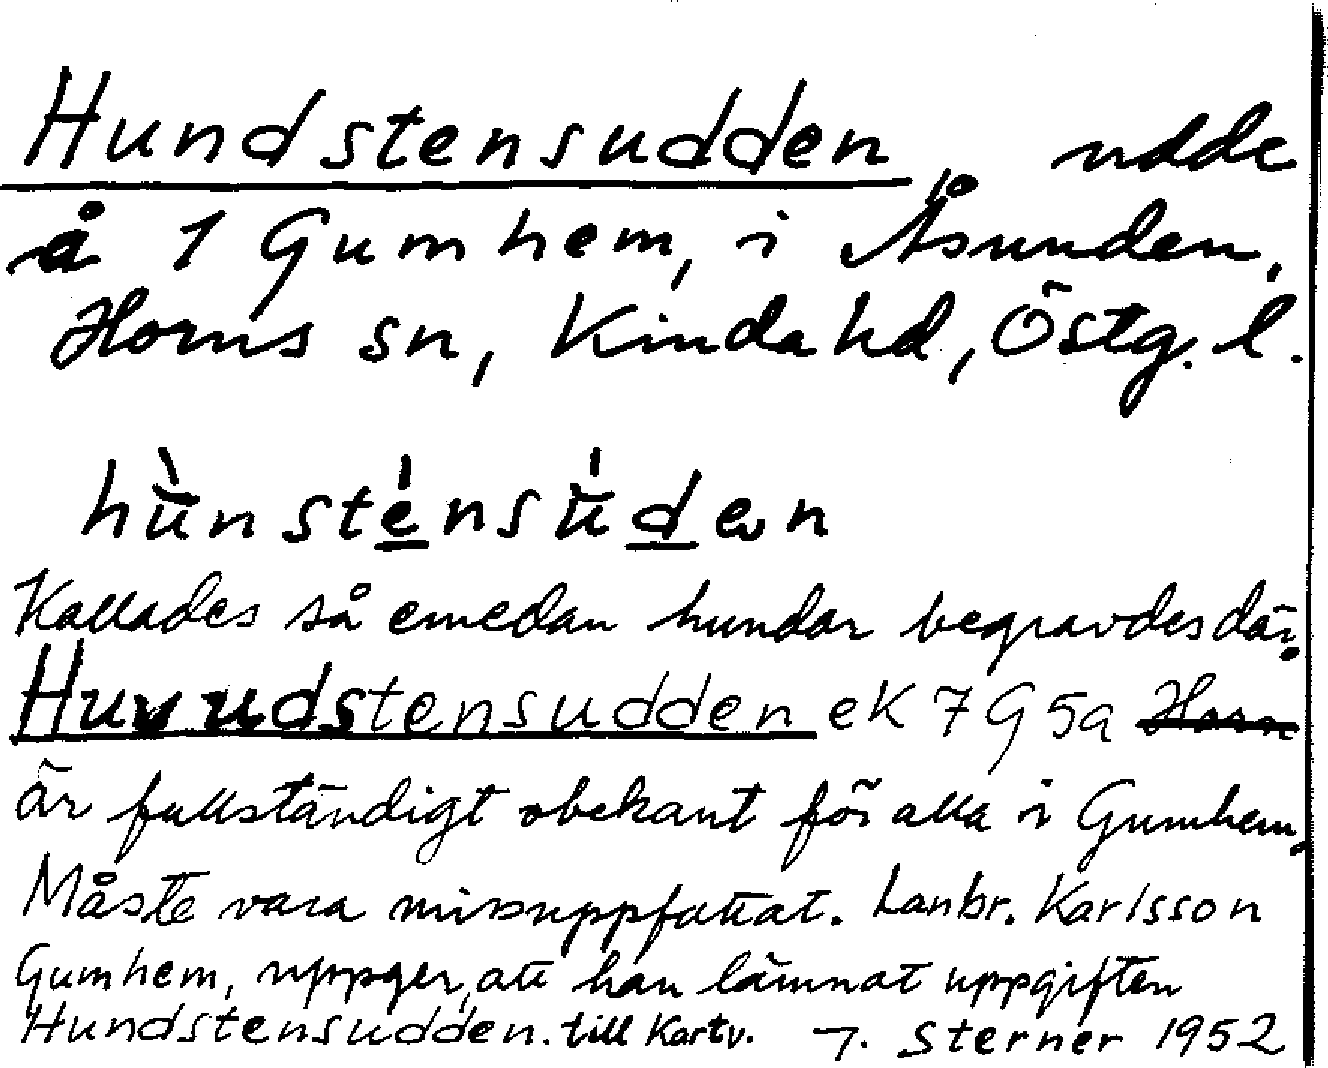 Hundstensudden, udde
å 1 Gumhem, i Åsunden,
Horns sn, Kinda hd, Östg. l.
hùnsténsúden
Kallades så emedan hundar begravdes där.
Huvudstensudden ek 7G5a Horn
är fullständigt obekant för alla i Gumhem.
Måste vara missuppfattat. Lanbr. Karlsson
Gumhem, uppger, att han lämnat uppgiften
Hundstensudden. till Kartv. J. Sterner 1952